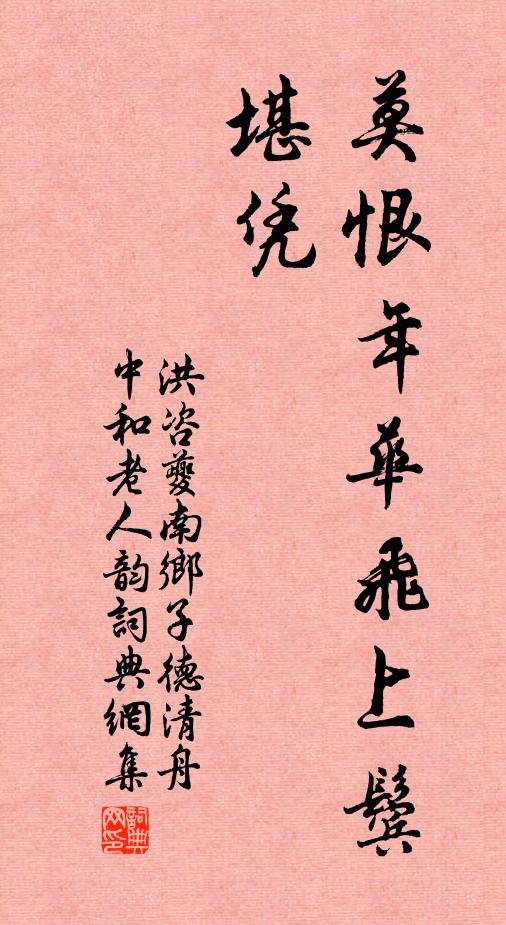 莫恨年華飛上鬢
堪凭
洪咨夔南鄉子德清舟
中和老人韵詞典網集
詞典
网印